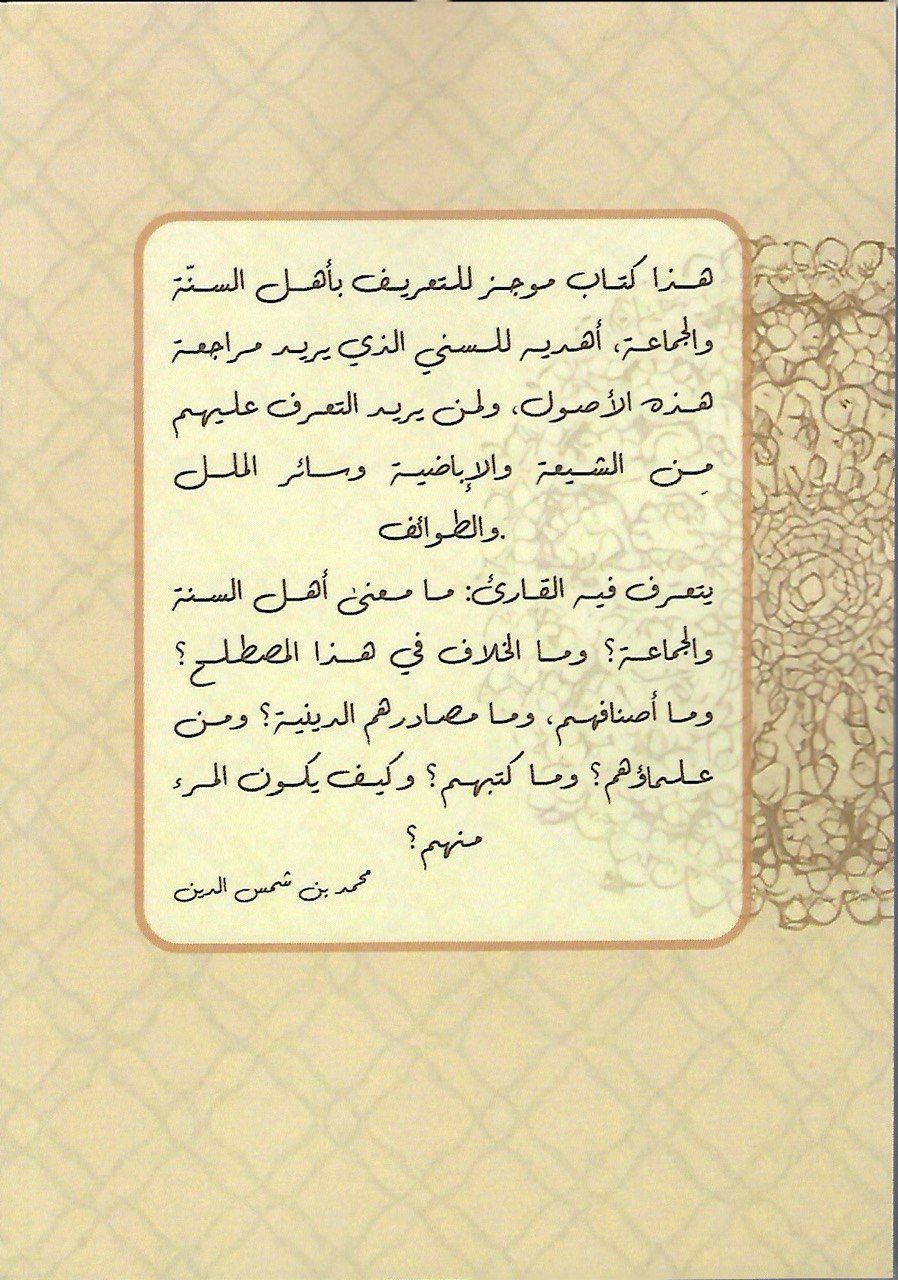 هذا كتاب موجز للتعريف بأهل السنّة
والجماعة، أهديه للسني الذي يريد مراجعة
هذه الأصول، ولمن يريد التعرف عليهم
مِن الشيعة والإباضية وسائر الملل
والطوائف.
يتعرف فيه القارئ: ما معنىٰ أهل السنة
والجماعة؟ وما الخلاف في هذا المصطلح؟
وما أصنافهم، وما مصادرهم الدينية؟ ومن
علماؤهم؟ وما كتبهم؟ وكيف يكون المرء
منهم؟
محمد بن شمس الدين